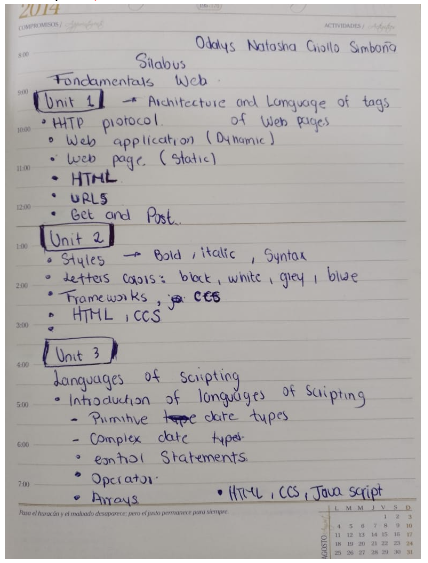 2014
COMPROMISOS
ACTIVIDADES
Odalys Natasha Criollo Simbaña
8:00
Silabus
Fondamentals Web
9:00
Unit 1 → Architecture and Language of tags
of Web pages
• HTTP protocol.
10:00
• Web application (Dynamic)
• Web page (Static)
11:00
• HTML
• URLS
12:00
• Get and Post
Unit 2
1:00
• Styles → Bold, italic, Syntax
• Letters colors: black, white, grey, blue
2:00
• Frameworks, CCS
• HTML, CCS
3:00
•
Unit 3
4:00
Languages of Scripting
5:00
• Introduction of languages of Scripting
- Primitive date types
6:00
- Complex date types
• control Statements
• Operator.
7:00
• Arrays • HTML, CCS, Java script
Para el huracán y el malvado desaparece; pero el justo permanece para siempre.
AGOSTO
L M M J V S D
1 2 3
4 5 6 7 8 9 10
11 12 13 14 15 16 17
18 19 20 21 22 23 24
25 26 27 28 29 30 31